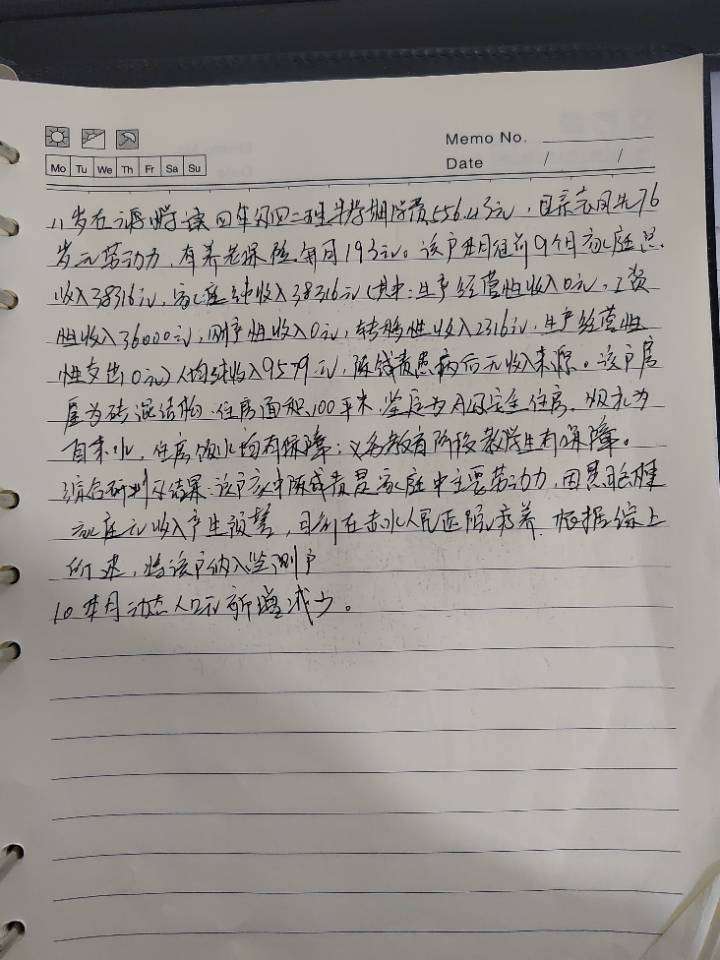 Memo No.
Date / /
Mo Tu We Th Fr Sa Su
11岁在小学读四年级四二班半学期学费556.43元，母亲袁同先76
岁无劳动力，有养老保险每月193元。该户本月往前9个月家庭总
收入38316元，家庭纯收入38316元（其中：生产经营性收入0元，工资
性收入36000元，财产性收入0元，转移性收入2316元，生产经营性
性支出0元）人均纯收入9579元，陈钱贵患病后无收入来源。该户房
屋为砖混结构，住房面积100平米，鉴定为A级安全住房，饮水为
自来水，住房饮水均有保障；义务教育阶段教学生有保障。
综合研判结果：该户家中陈钱贵是家庭中主要劳动力，因患
家庭无收入产生预警，目前在赤水人民医院疗养，根据综上
所述，将该户纳入监测户
10、本月动态人口无新增减少。